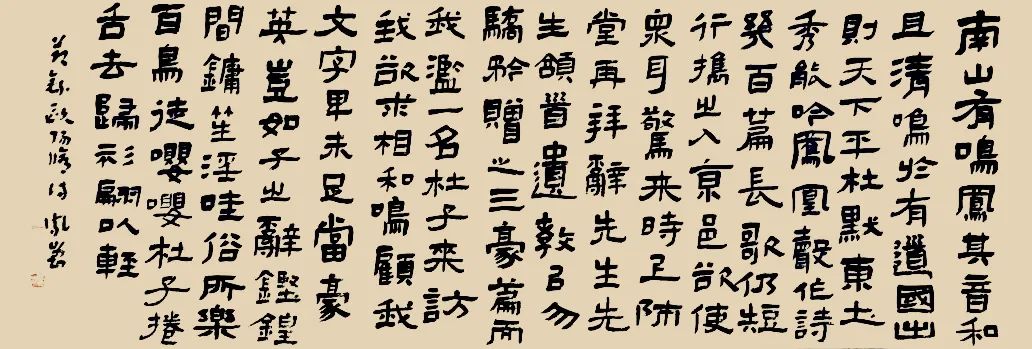 南山有鳴鳳其音和
且清鳴於有道國出
則天下平杜默東土
秀能吟鳳凰聲作詩
幾百篇長歌仍短
行攜之入京邑欲使
衆耳驚來時上師
堂再拜辭先生先
生頷首遣教以勿
驕矜贈之三豪篇而
我濫一名杜子來訪
我欲求相和鳴顧我
文字卑未足當豪
英豈如子之辭鏗鍠
間鏞笙淫哇俗所樂
百鳥徒嚶嚶杜子捲
舌去歸衫翩以輕
歐陽脩詩